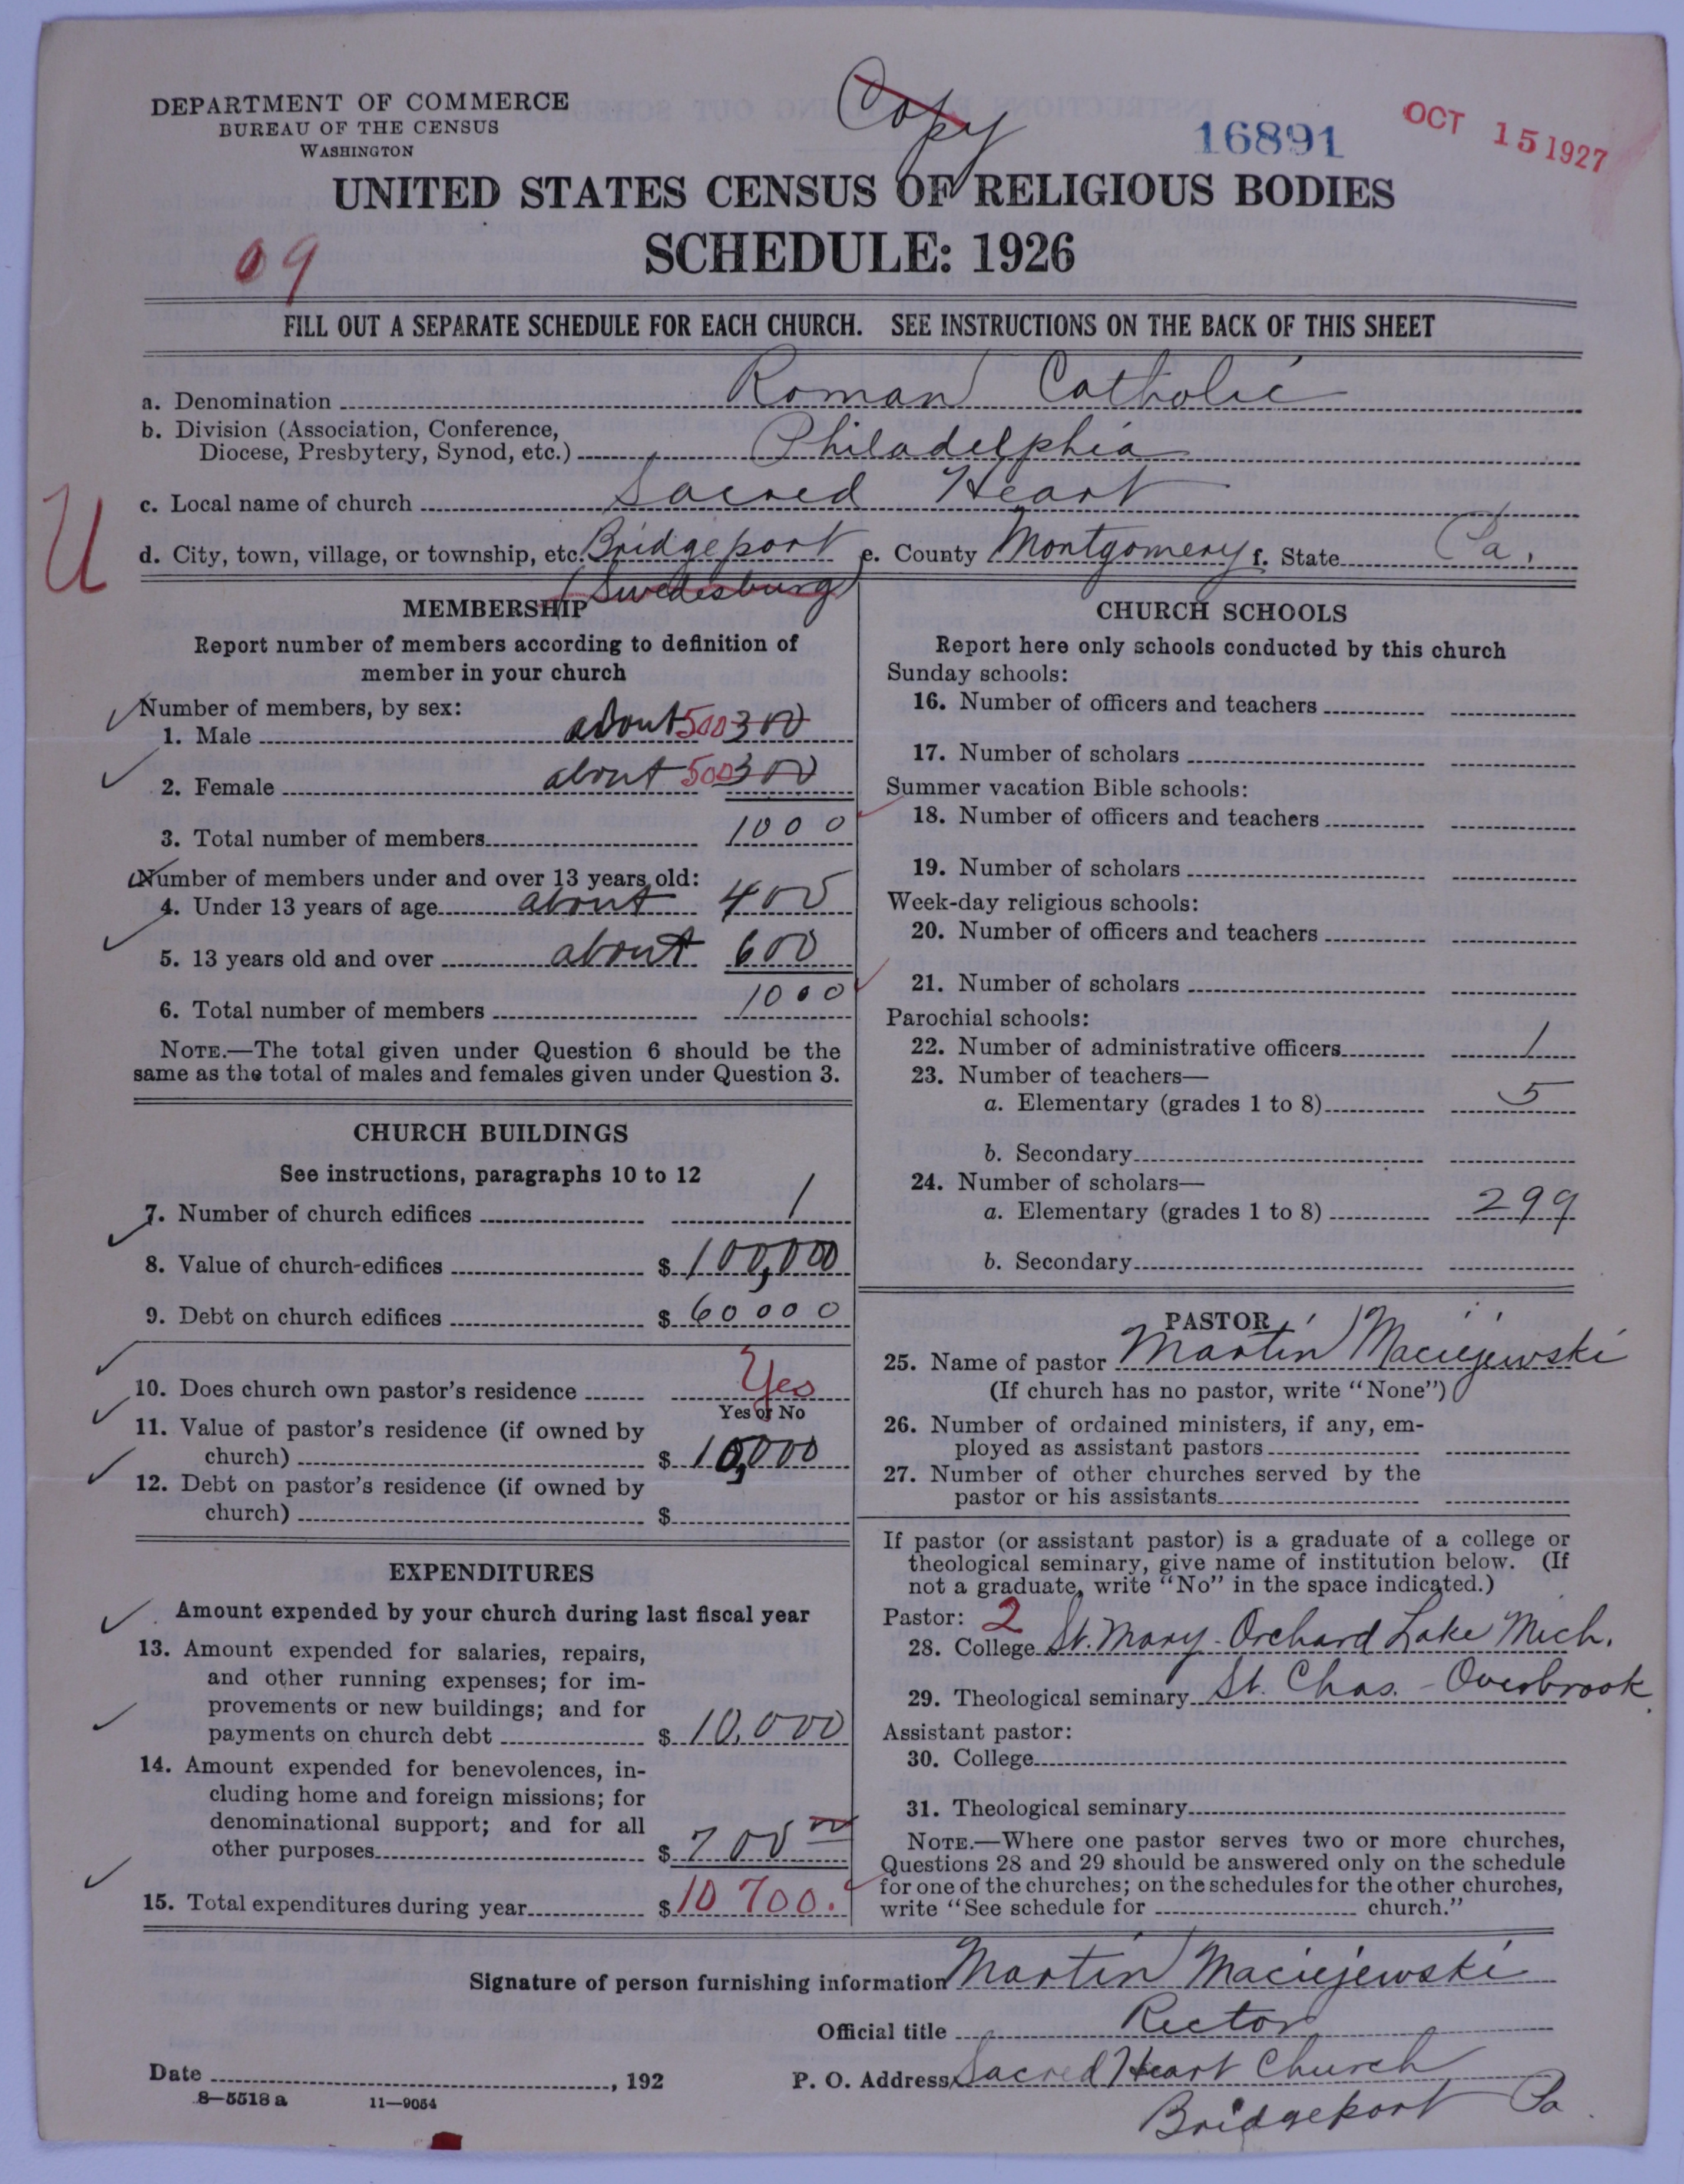 DEPARTMENT OF COMMERCE
BUREAU OF THE CENSUS
WASHINGTON
Copy
16891
OCT 15 1927
UNITED STATES CENSUS OF RELIGIOUS BODIES
SCHEDULE: 1926
09
FILL OUT A SEPARATE SCHEDULE FOR EACH CHURCH. SEE INSTRUCTIONS ON THE BACK OF THIS SHEET
a. Denomination Roman Catholic
b. Division (Association, Conference,
Diocese, Presbytery, Synod, etc.) Philadelphia
c. Local name of church Sacred Heart
U
d. City, town, village, or township, etc. Bridgeport e. County Montgomery f. State Pa.
(Swedesburg)
MEMBERSHIP
Report number of members according to definition of
member in your church
Number of members, by sex:
1. Male about 500 300
2. Female about 500 300
3. Total number of members 1000
Number of members under and over 13 years old:
4. Under 13 years of age about 400
5. 13 years old and over about 600
6. Total number of members 1000
NOTE.—The total given under Question 6 should be the
same as the total of males and females given under Question 3.
CHURCH BUILDINGS
See instructions, paragraphs 10 to 12
7. Number of church edifices 1
8. Value of church edifices $ 100,000
9. Debt on church edifices $ 60000
10. Does church own pastor's residence Yes
Yes or No
11. Value of pastor's residence (if owned by
church) $ 10,000
12. Debt on pastor's residence (if owned by
church) $
EXPENDITURES
Amount expended by your church during last fiscal year
13. Amount expended for salaries, repairs,
and other running expenses; for im-
provements or new buildings; and for
payments on church debt $ 10,000
14. Amount expended for benevolences, in-
cluding home and foreign missions; for
denominational support; and for all
other purposes $ 700
15. Total expenditures during year $ 10 700.
CHURCH SCHOOLS
Report here only schools conducted by this church
Sunday schools:
16. Number of officers and teachers
17. Number of scholars
Summer vacation Bible schools:
18. Number of officers and teachers
19. Number of scholars
Week-day religious schools:
20. Number of officers and teachers
21. Number of scholars
Parochial schools:
22. Number of administrative officers 1
23. Number of teachers—
a. Elementary (grades 1 to 8) 5
b. Secondary
24. Number of scholars—
a. Elementary (grades 1 to 8) 299
b. Secondary
PASTOR
25. Name of pastor Martin Maciejewski
(If church has no pastor, write "None")
26. Number of ordained ministers, if any, em-
ployed as assistant pastors
27. Number of other churches served by the
pastor or his assistants
If pastor (or assistant pastor) is a graduate of a college or
theological seminary, give name of institution below. (If
not a graduate, write "No" in the space indicated.)
Pastor: 2
28. College St. Mary - Orchard Lake Mich.
29. Theological seminary St. Chas. - Overbrook.
Assistant pastor:
30. College
31. Theological seminary
NOTE.—Where one pastor serves two or more churches,
Questions 28 and 29 should be answered only on the schedule
for one of the churches; on the schedules for the other churches,
write "See schedule for church."
Signature of person furnishing information Martin Maciejewski
Official title Rector
Date , 192
P. O. Address Sacred Heart Church
Bridgeport Pa.
8—5518 a 11—9054